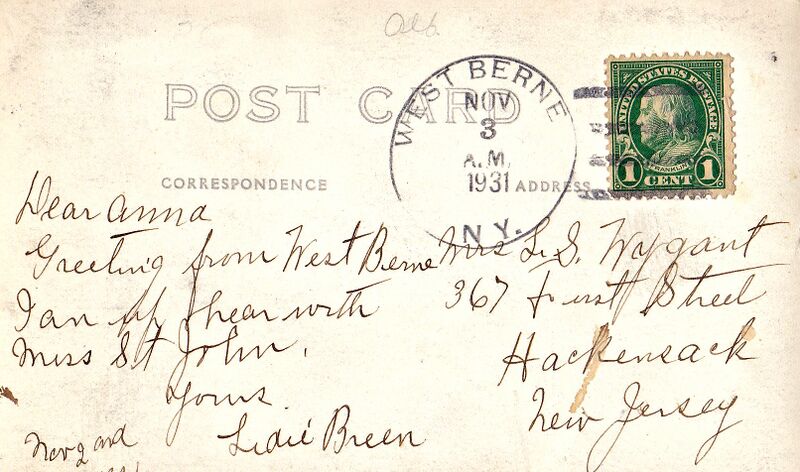 Alb.
POST CARD
WEST BERNE
NOV
3
A.M.
1931
N.Y.
UNITED STATES POSTAGE
FRANKLIN
1 CENT 1
CORRESPONDENCE
ADDRESS
Dear Anna
Greeting from West Berne
I an up hear with
Miss St John.
Yours
Lidie Breen
Nov 2 and
Mrs L. S. Wygant
367 First Street
Hackensack
New Jersey